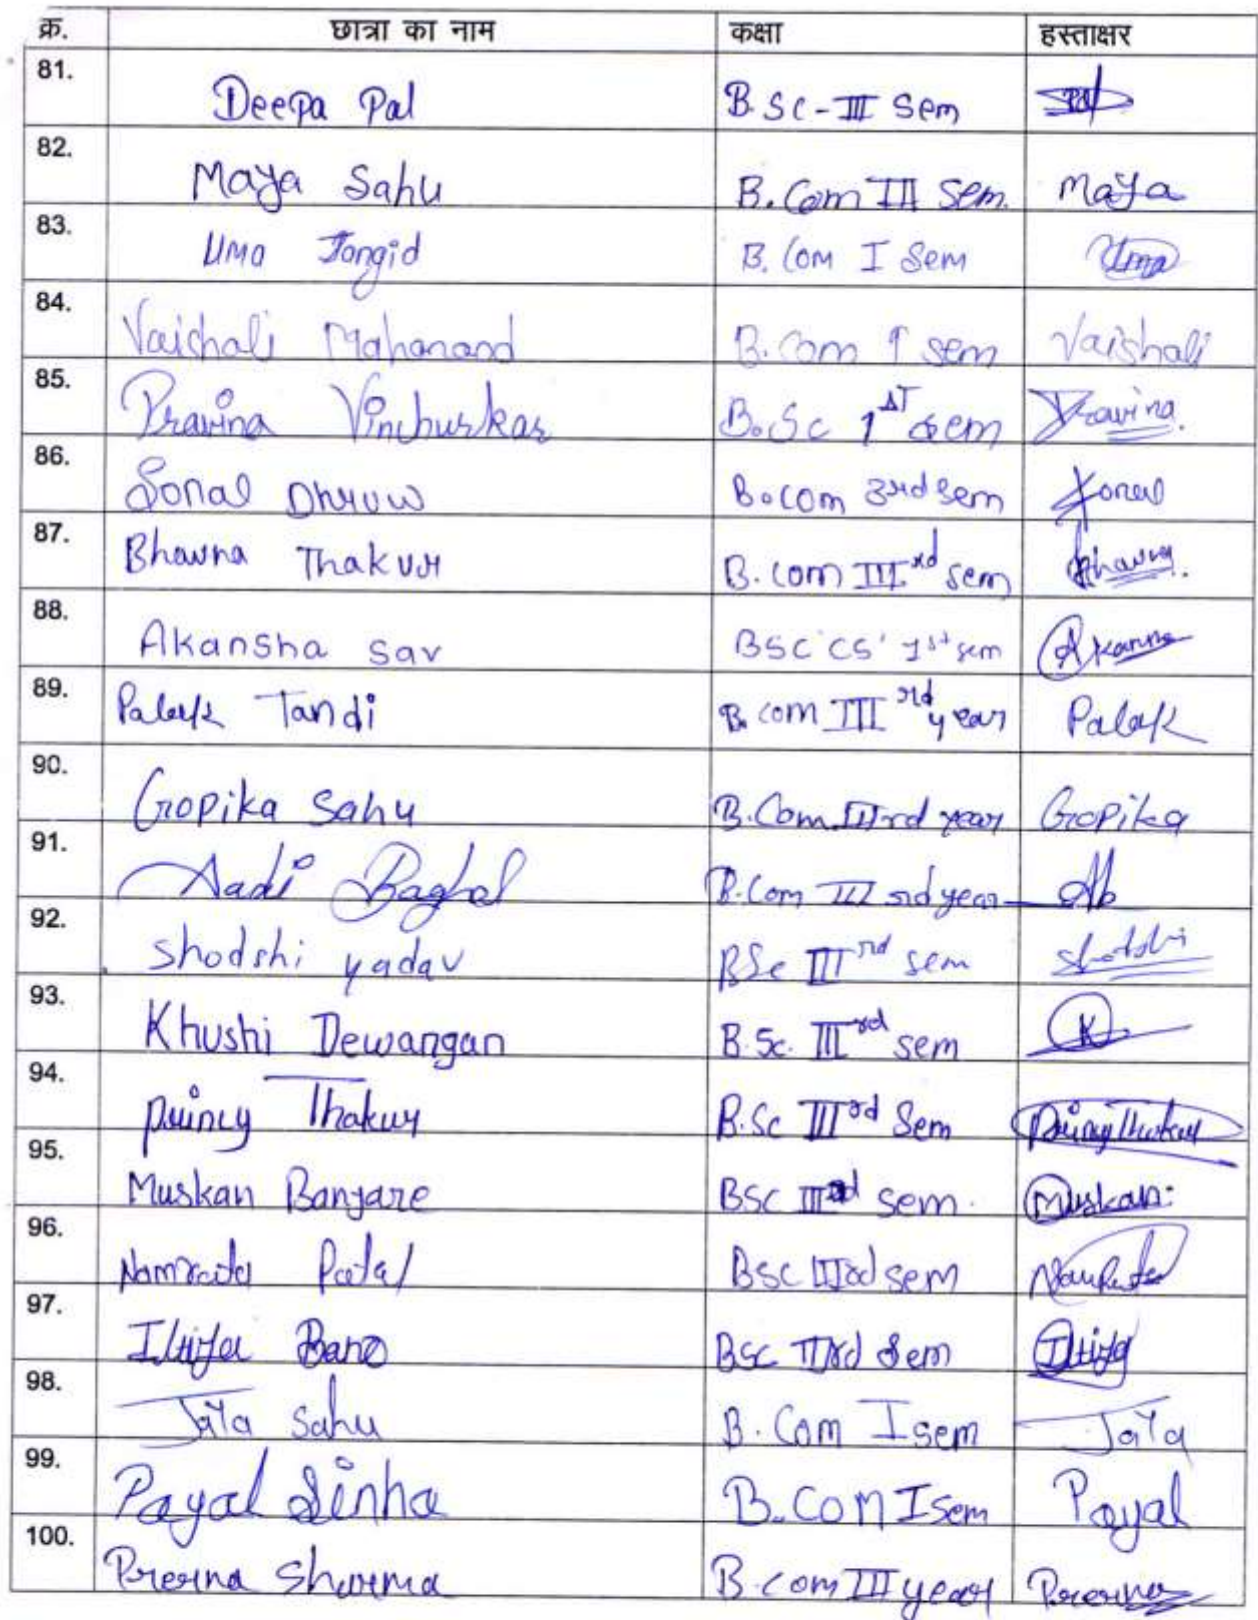 क्र. छात्रा का नाम कक्षा हस्ताक्षर
81. Deepa Pal B.Sc-III Sem Pal
82. Maya Sahu B.Com III Sem. Maya
83. Uma Jongid B.Com I Sem Uma
84. Vaishali Mahanand B.Com I sem Vaishali
85. Pravina Vinchurkar B.Sc 1ST Sem Pravina.
86. Sonal Dhruw B.com 3rd Sem Sonal
87. Bhavna Thakur B.com IIIrd sem Bhavna.
88. Akansha Sav BSC 'CS' 1st sem
89. Palak Tandi B.com IIIrd year Palak
90. Gopika Sahu B.Com IIIrd year Gopika
91. Aadi Baghel B.Com III rd year Ab
92. Shodshi yadav BSc IIIrd sem Shodshi
93. Khushi Dewangan B.Sc. IIIrd sem K
94. Princy Thakur B.Sc IIIrd Sem Princy Thakur
95. Muskan Banjare BSC IIIrd sem. Muskan
96. Namrata Patel BSC IIIrd sem Namrata
97. Bano BSC IIIrd Sem
98. Jaya Sahu B.Com I sem Jaya
99. Payal Sinha B.COM I sem Payal
100. Prerna Sharma B.com III year Prerna